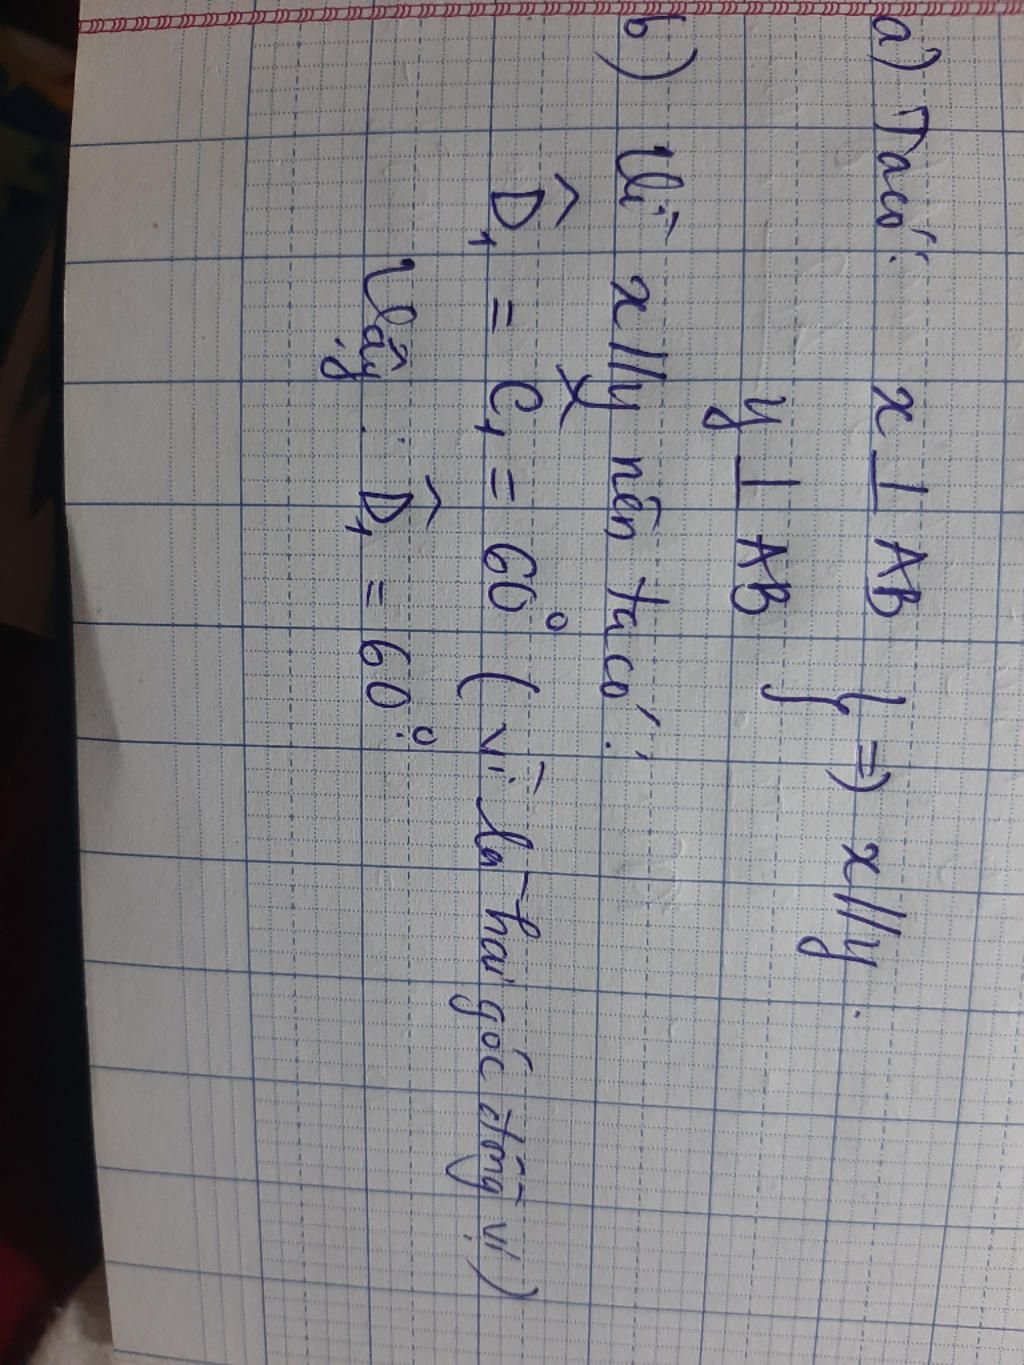 a) Ta có: x ⊥ AB
y ⊥ AB } => x//y.
b) Vì x//y nên ta có:
D̂₁ = Ĉ₁ = 60° (vì là hai góc đồng vị)
Vậy: D̂₁ = 60°.